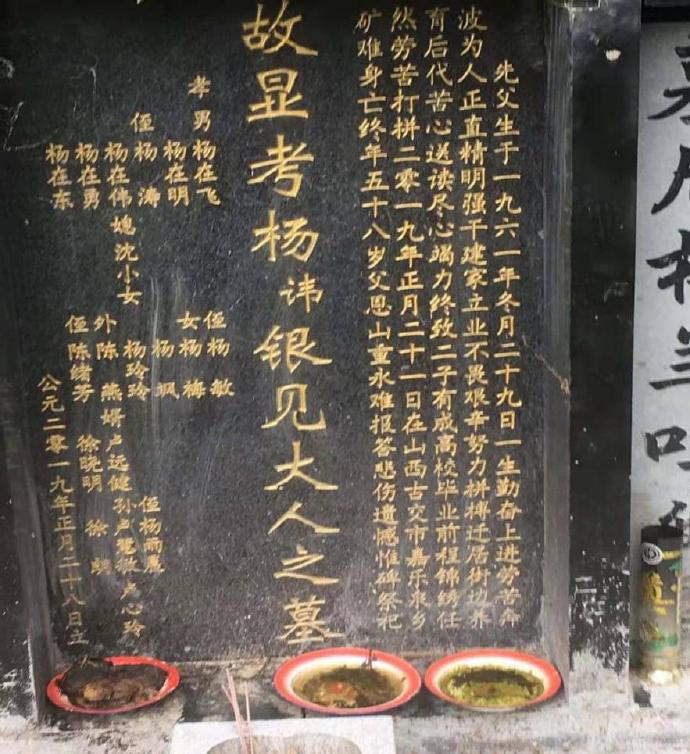 先父生于一九六一年冬月二十九日一生勤奋上进劳苦奔
波为人正直精明强干建家立业不畏艰辛努力拼搏迁居街边养
育后代苦心送读尽心竭力终致二子有成高校毕业前程锦绣任
然劳苦打拼二零一九年正月二十一日在山西古交市嘉乐泉乡
矿难身亡终年五十八岁父恩山重水难报答悲伤遗憾惟碑祭祀
故显考杨讳银见大人之墓
孝男杨在飞
杨在明
侄杨涛
杨在伟媳沈小女
杨在勇
杨在东
侄杨敏
女杨梅
杨飒
杨玲玲
外陈燕婿卢远健孙卢慧微卢心玲
侄陈绪芳徐晓明徐
侄杨雨晨
公元二零一九年正月二十八日立